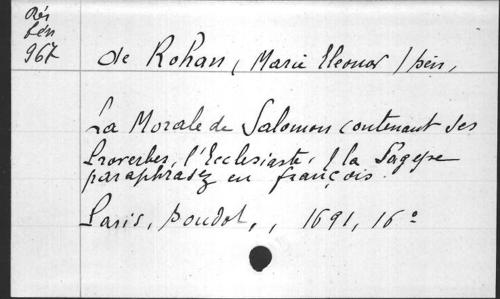 Rés
bén
967
de Rohan, Marie Eleonor / bén,
La Morale de Salomon contenant ses
Proverbes, l'Ecclesiaste, & la Sagesse
paraphrasez en françois.
Paris, Boudot, , 1691, 16°